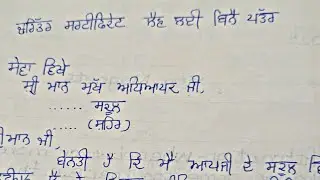 ਚਰਿੱਤਰ ਸਰਟੀਫਿਕੇਟ ਲੈਣ ਲਈ ਬਿਨੈ ਪੱਤਰ
ਸੇਵਾ ਵਿਖੇ
ਸ੍ਰੀ ਮਾਨ ਮੁੱਖ ਅਧਿਆਪਕ ਜੀ,
...... ਸਕੂਲ
...... (ਸ਼ਹਿਰ)
ਮਾਨ ਜੀ
ਬੇਨਤੀ ਹੈ ਕਿ ਮੈਂ ਆਪਜੀ ਦੇ ਸਕੂਲ ਵਿ